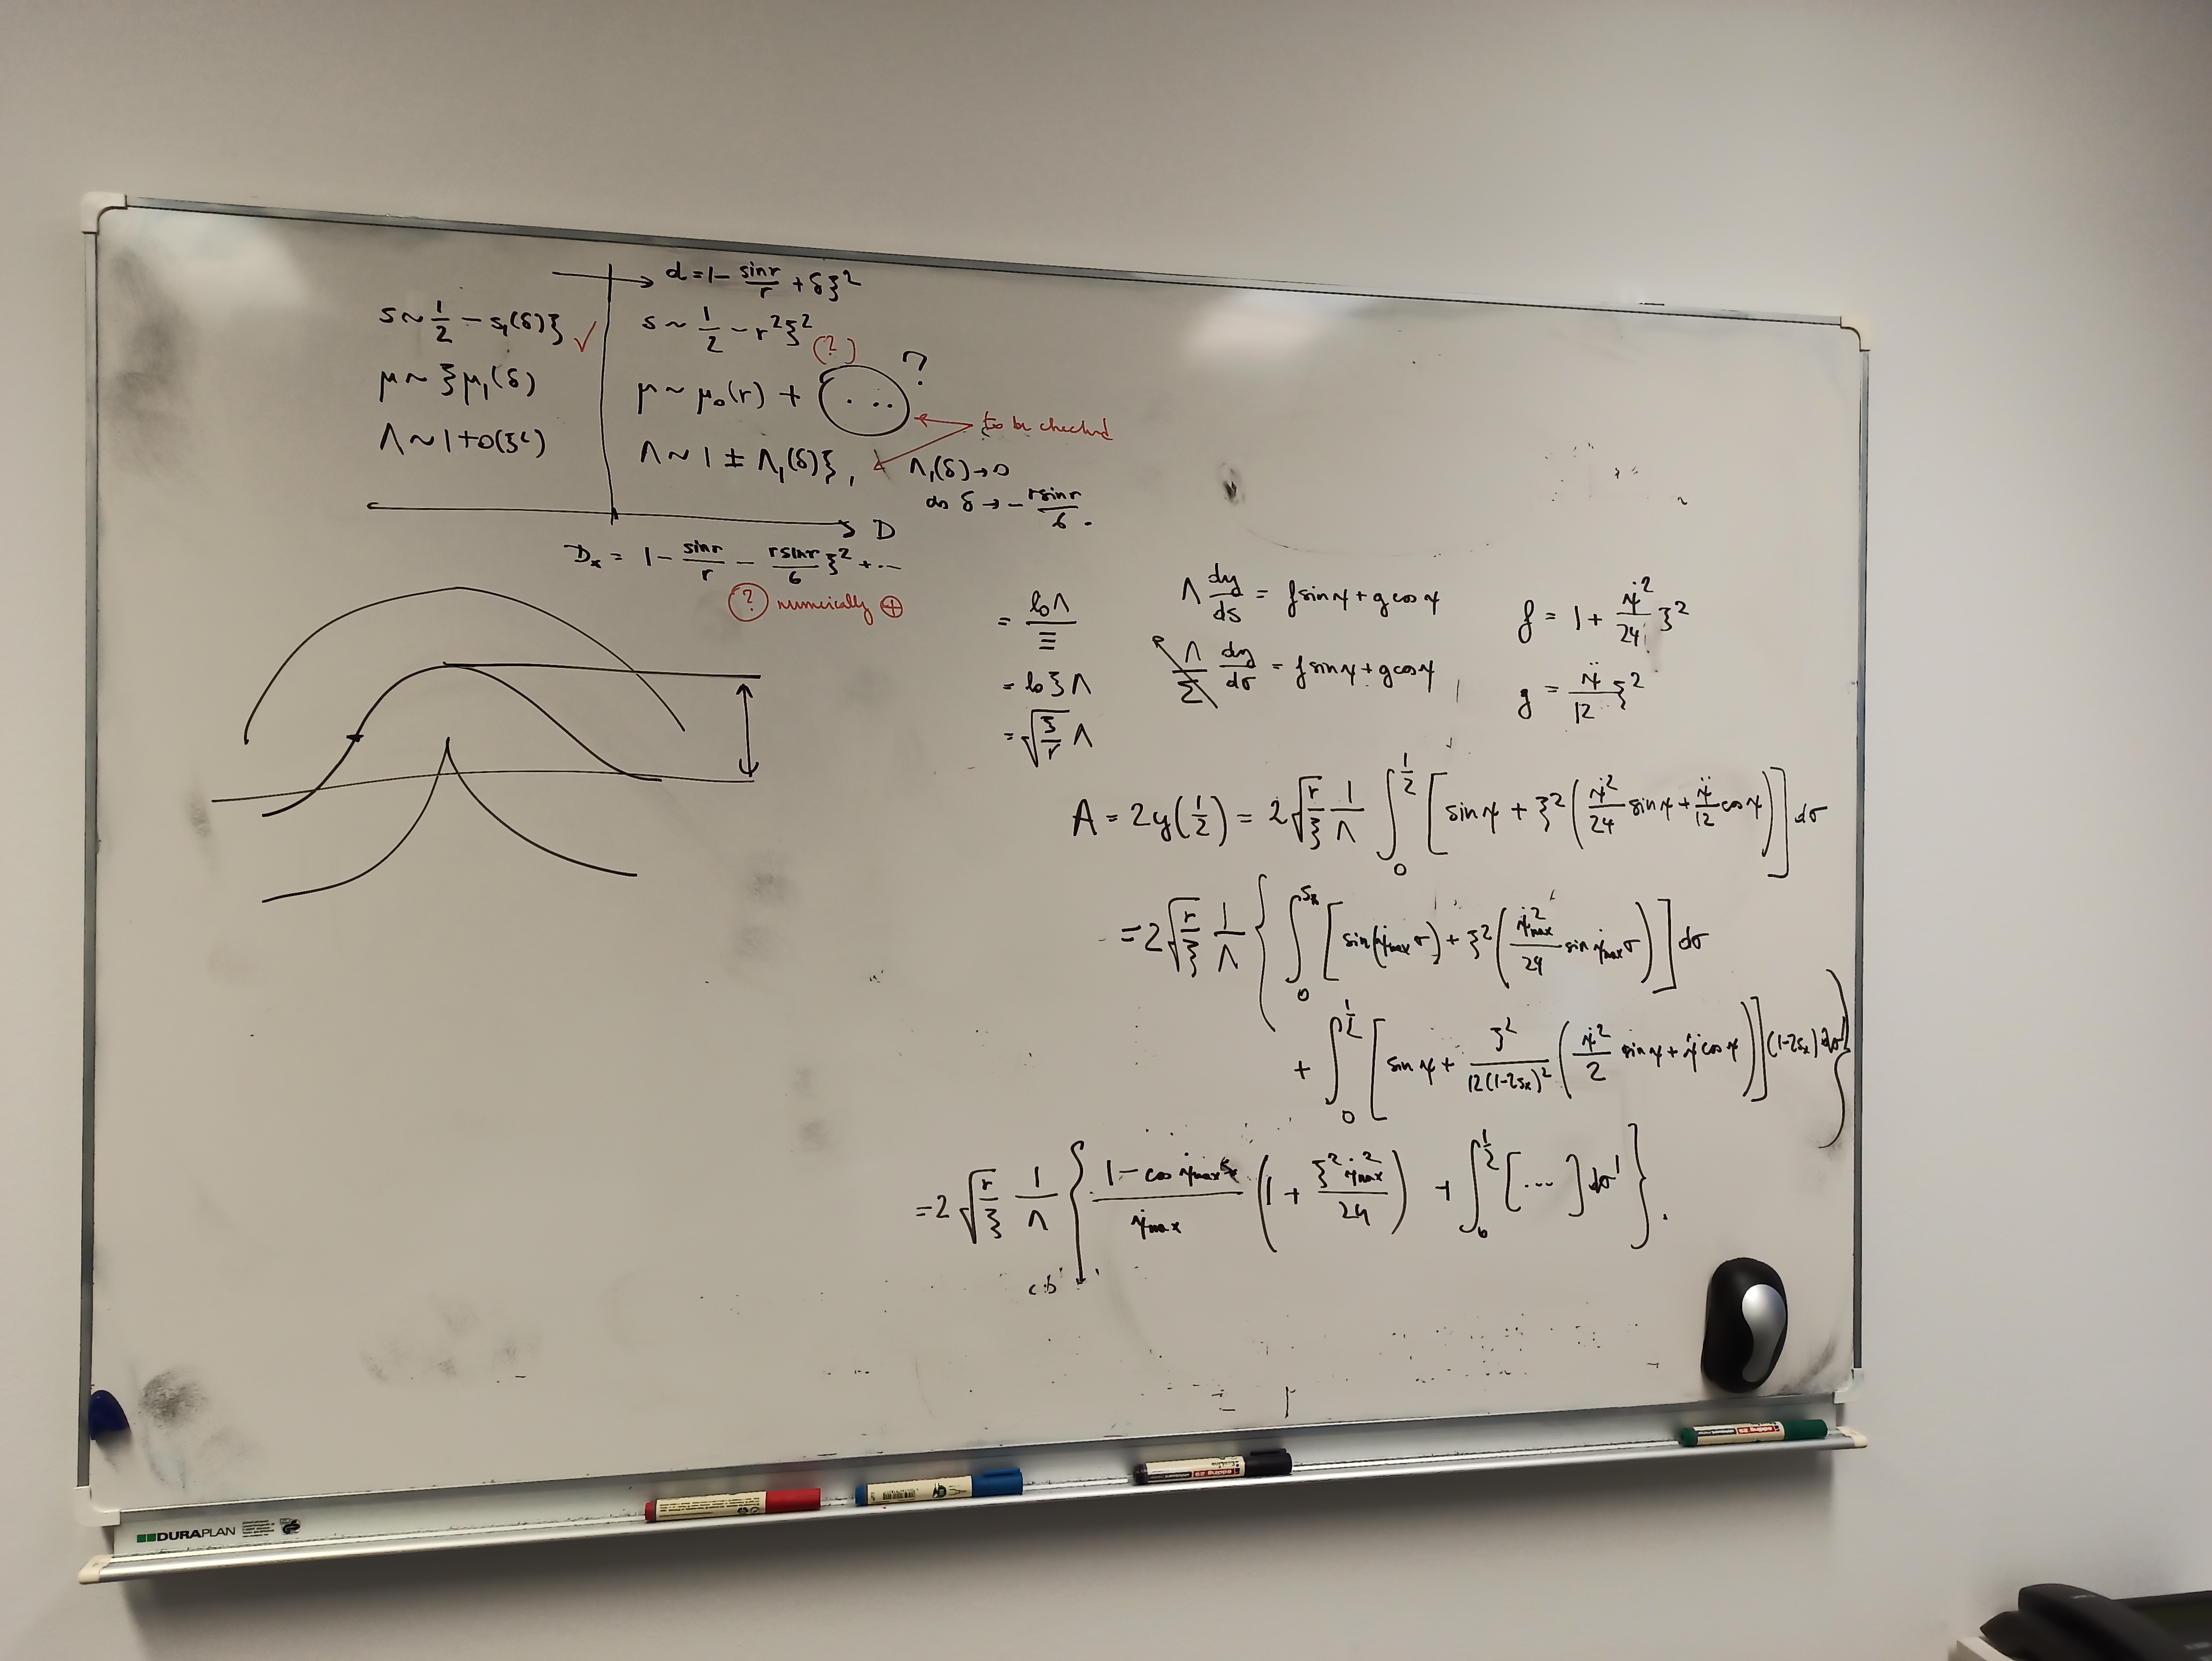 d = 1 - sin r / r + δξ²
s ~ 1/2 - s₁(δ)ξ ✓
μ ~ ξμ₁(δ)
Λ ~ 1 + o(ξ²)
s ~ 1/2 - r²ξ² (?)
μ ~ μ₀(r) + (...) ?
to be checked
Λ ~ 1 ± Λ₁(δ)ξ, Λ₁(δ) → 0
as δ → - r sin r / 6 .
D
Dₓ = 1 - sin r / r - r sin r / 6 ξ² + ...
(?) numerically ⊕
= l₀Λ / Ξ
= l₀ξΛ
= √(ξ/r) Λ
Λ dy/ds = f sin ψ + g cos ψ
Λ/Σ dy/dσ = f sin ψ + g cos ψ
f = 1 + ψ̇²/24 ξ²
g = ψ̈/12 ξ²
A = 2y(1/2) = 2 √(r/ξ) 1/Λ ∫₀^{1/2} [ sin ψ + ξ² ( ψ̇²/24 sin ψ + ψ̈/12 cos ψ ) ] dσ
= 2 √(r/ξ) 1/Λ { ∫₀^{sₓ} [ sin(ψ̇max σ) + ξ² ( ψ̇²max/24 sin ψ̇max σ ) ] dσ
+ ∫₀^{1/2} [ sin ψ + ξ²/12(1-2sₓ)² ( ψ̇²/2 sin ψ + ψ̈ cos ψ ) ] (1-2sₓ) dσ' }
= 2 √(r/ξ) 1/Λ { (1 - cos ψ̇max sₓ)/ψ̇max ( 1 + ξ² ψ̇²max/24 ) + ∫₀^{1/2} [ ... ] dσ' } .
DURAPLAN
edding 28